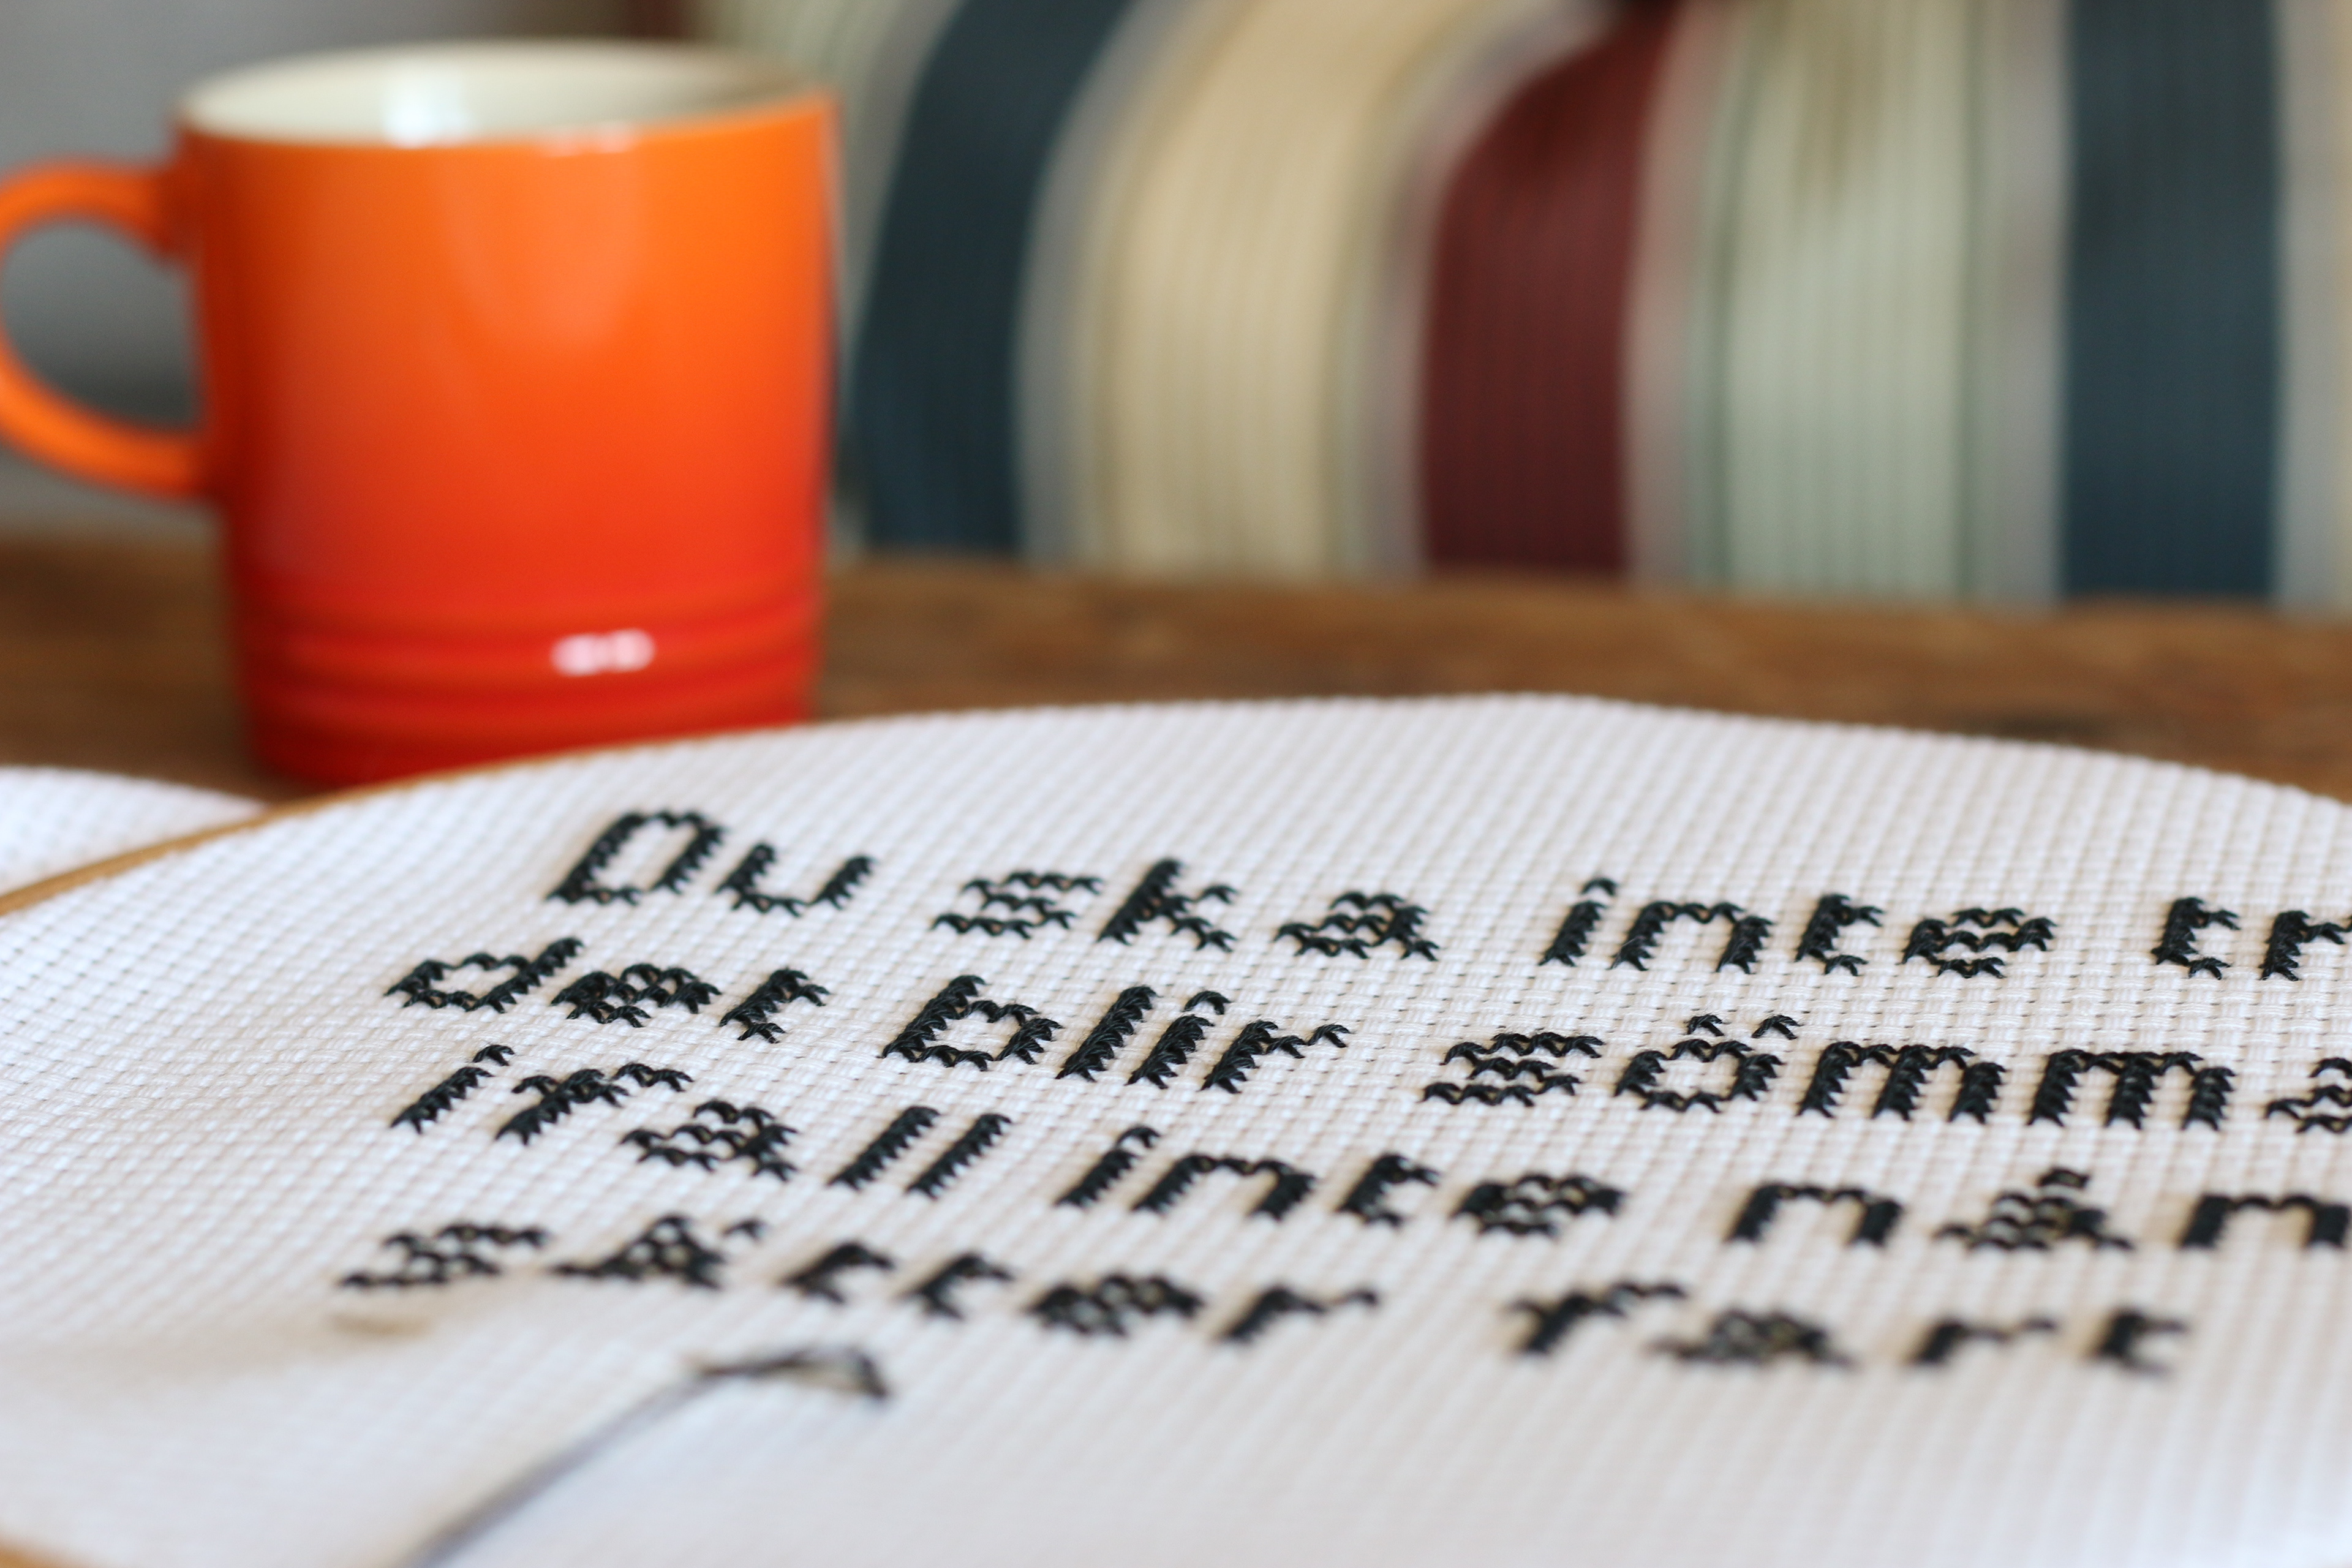 Du ska inte tr
det blir sömma
ifall inte nån
sätter fart